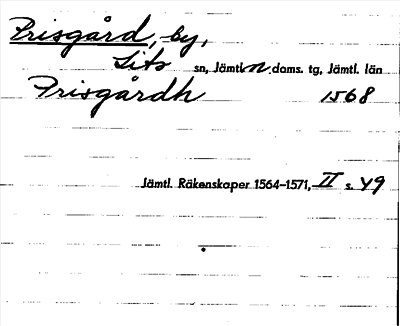 Prisgård, by,
Lits sn, Jämtl. n. doms. tg, Jämtl. län
Prisgårdh 1568
Jämtl. Räkenskaper 1564-1571, II s. 49